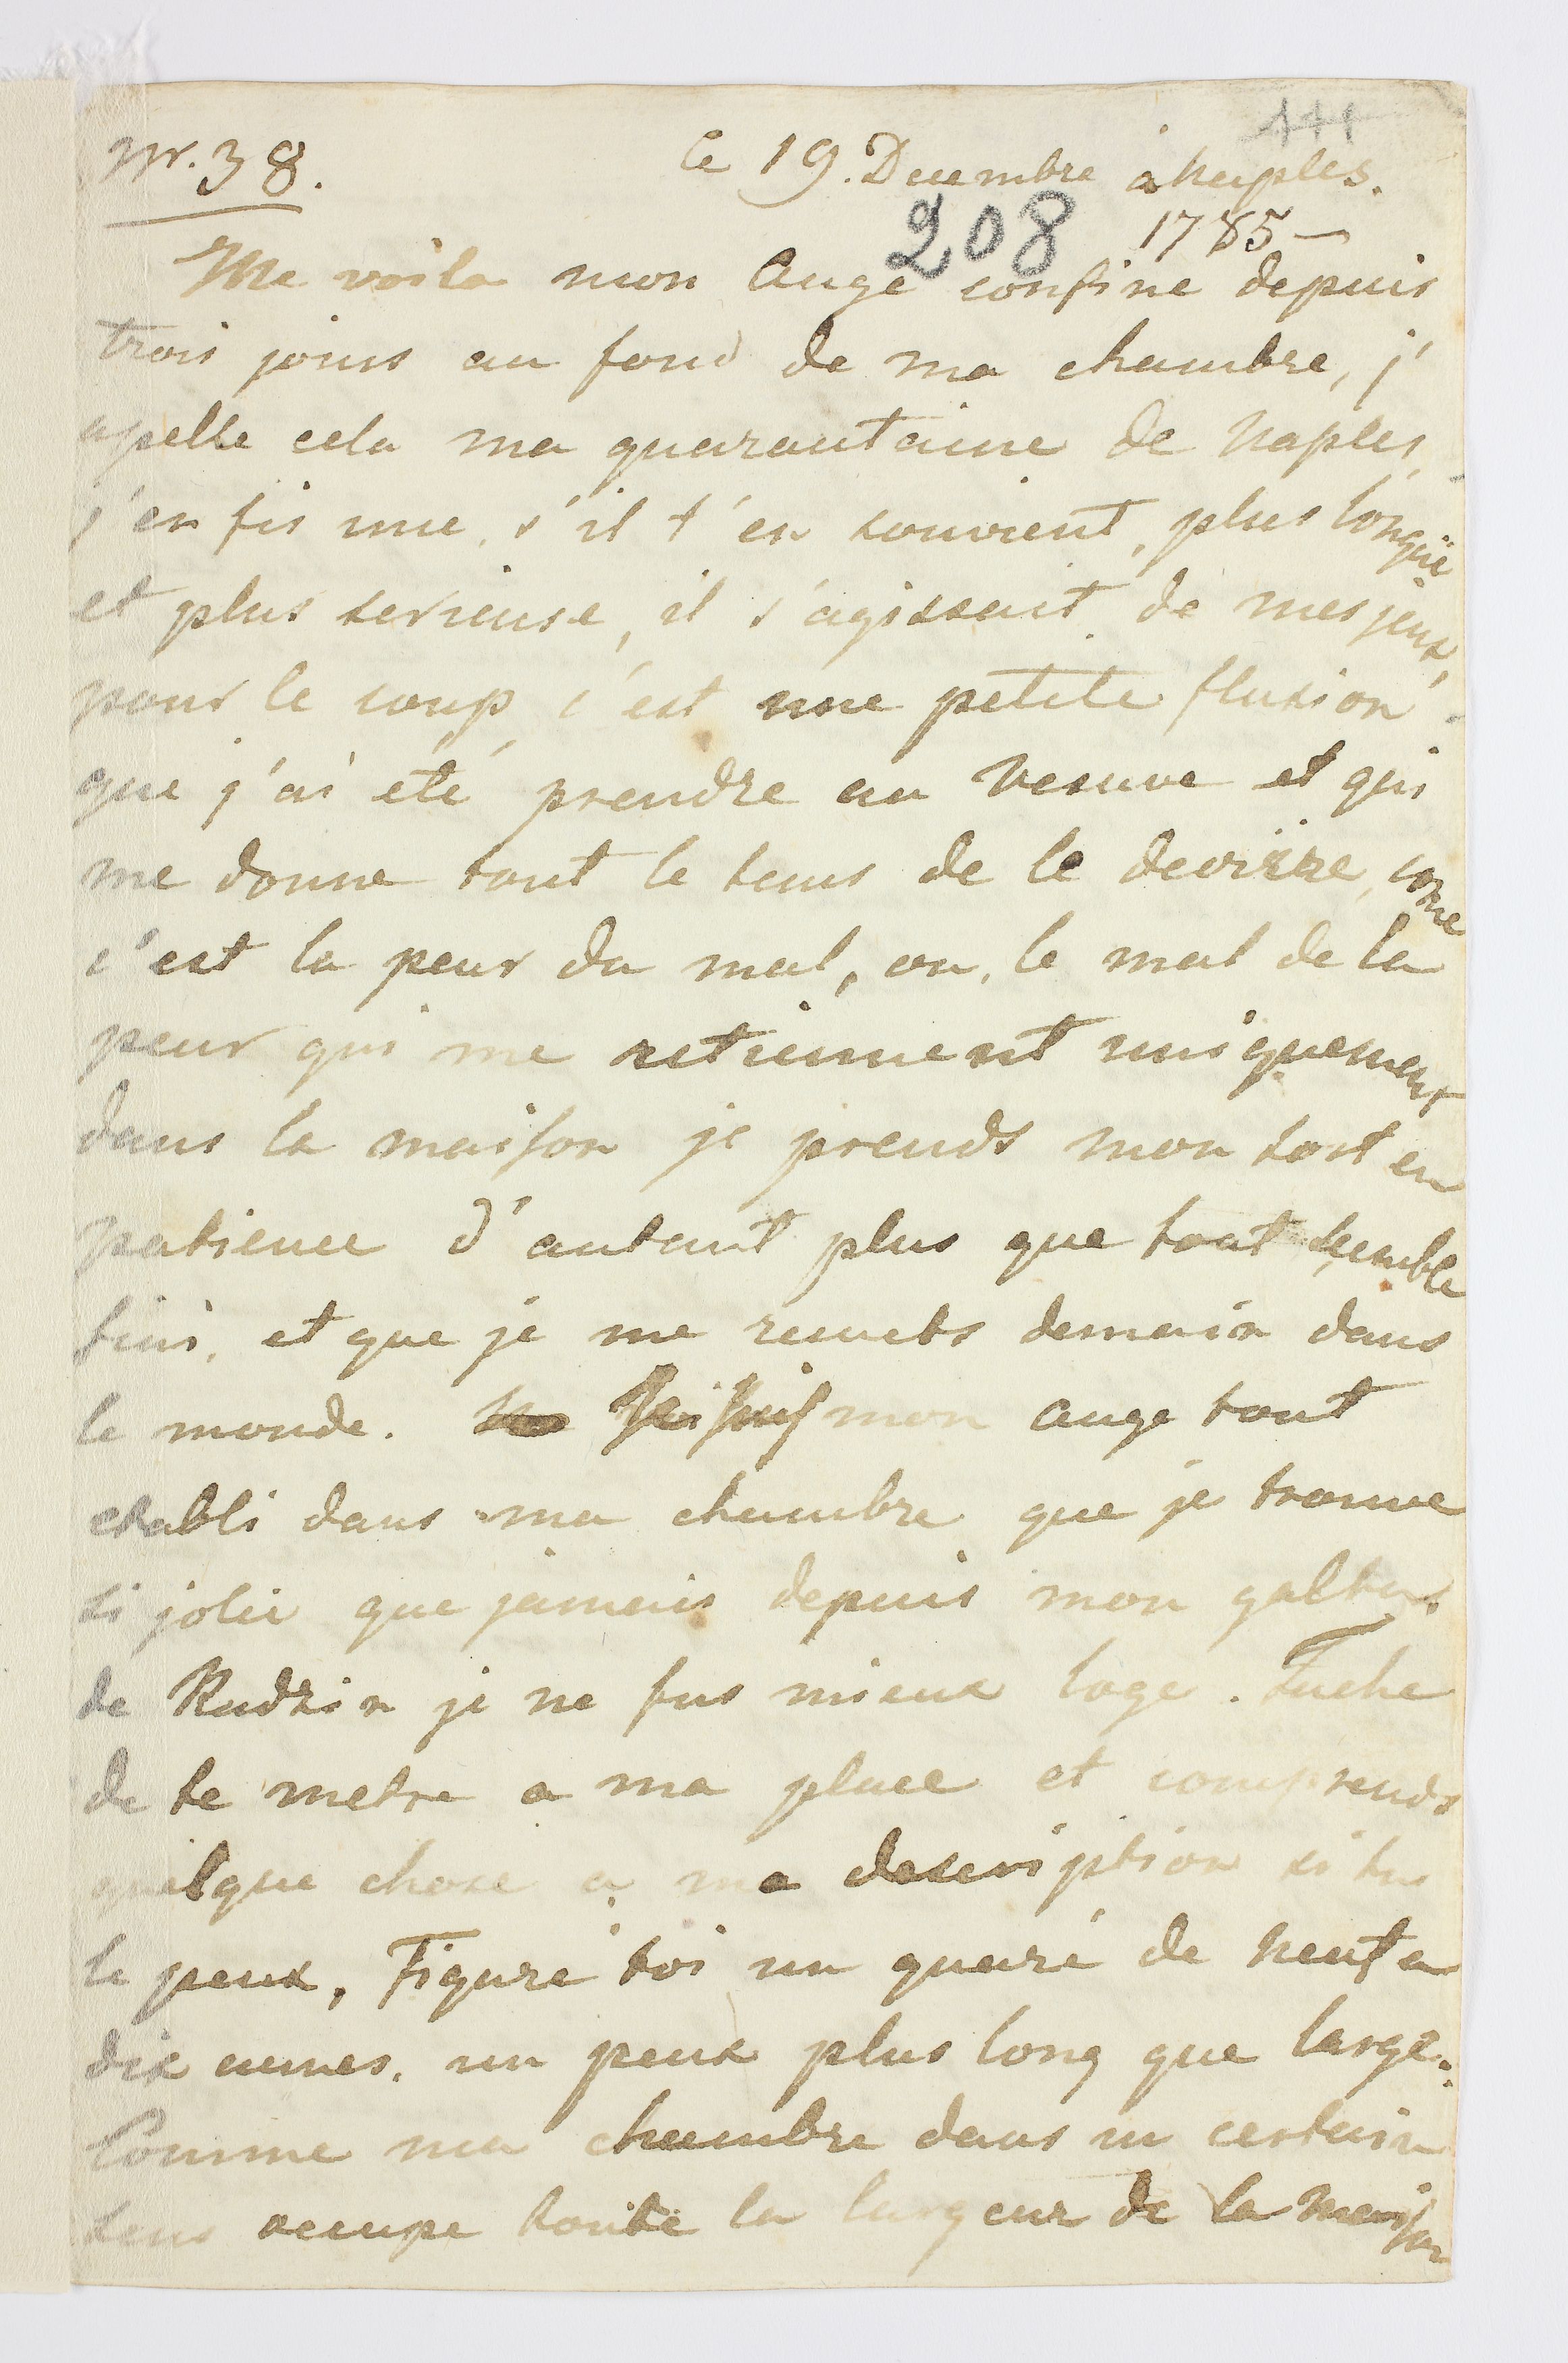 111
Nr. 38. Ce 19. Decembre a Naples.
208 1785 —
Me voila mon Ange confine depuis
trois jours au fond de ma chambre, j'
apelle cela ma quarantaine de Naples,
j'en fis une, s'il t'en souvient, plus longüe
et plus serieuse, il s'agissait de mes jeux,
pour le coup c'est une petite fluxion
que j'ai été prendre au Vesuve et qui
me donne tout le tems de le
c'est la peur du mal, ou, le mal de la
peur qui me retiennent uniquement
dans la maison je prends mon tort en
patience d'autant plus que tout semble
fini, et que je me remets demain dans
le monde. mon ange tout
etabli dans ma chambre que je trouve
si jolie que jamais depuis mon
de Rudzin je ne fus mieux loge. Tache
de te metre a ma place et comprends
quelque chose a ma description si tu
le peux, Figure toi un quaré de neuf a
dix aunes. un peux plus long que large.
Comme ma chambre dans un certain
sens occupe toute la largeur de la maison